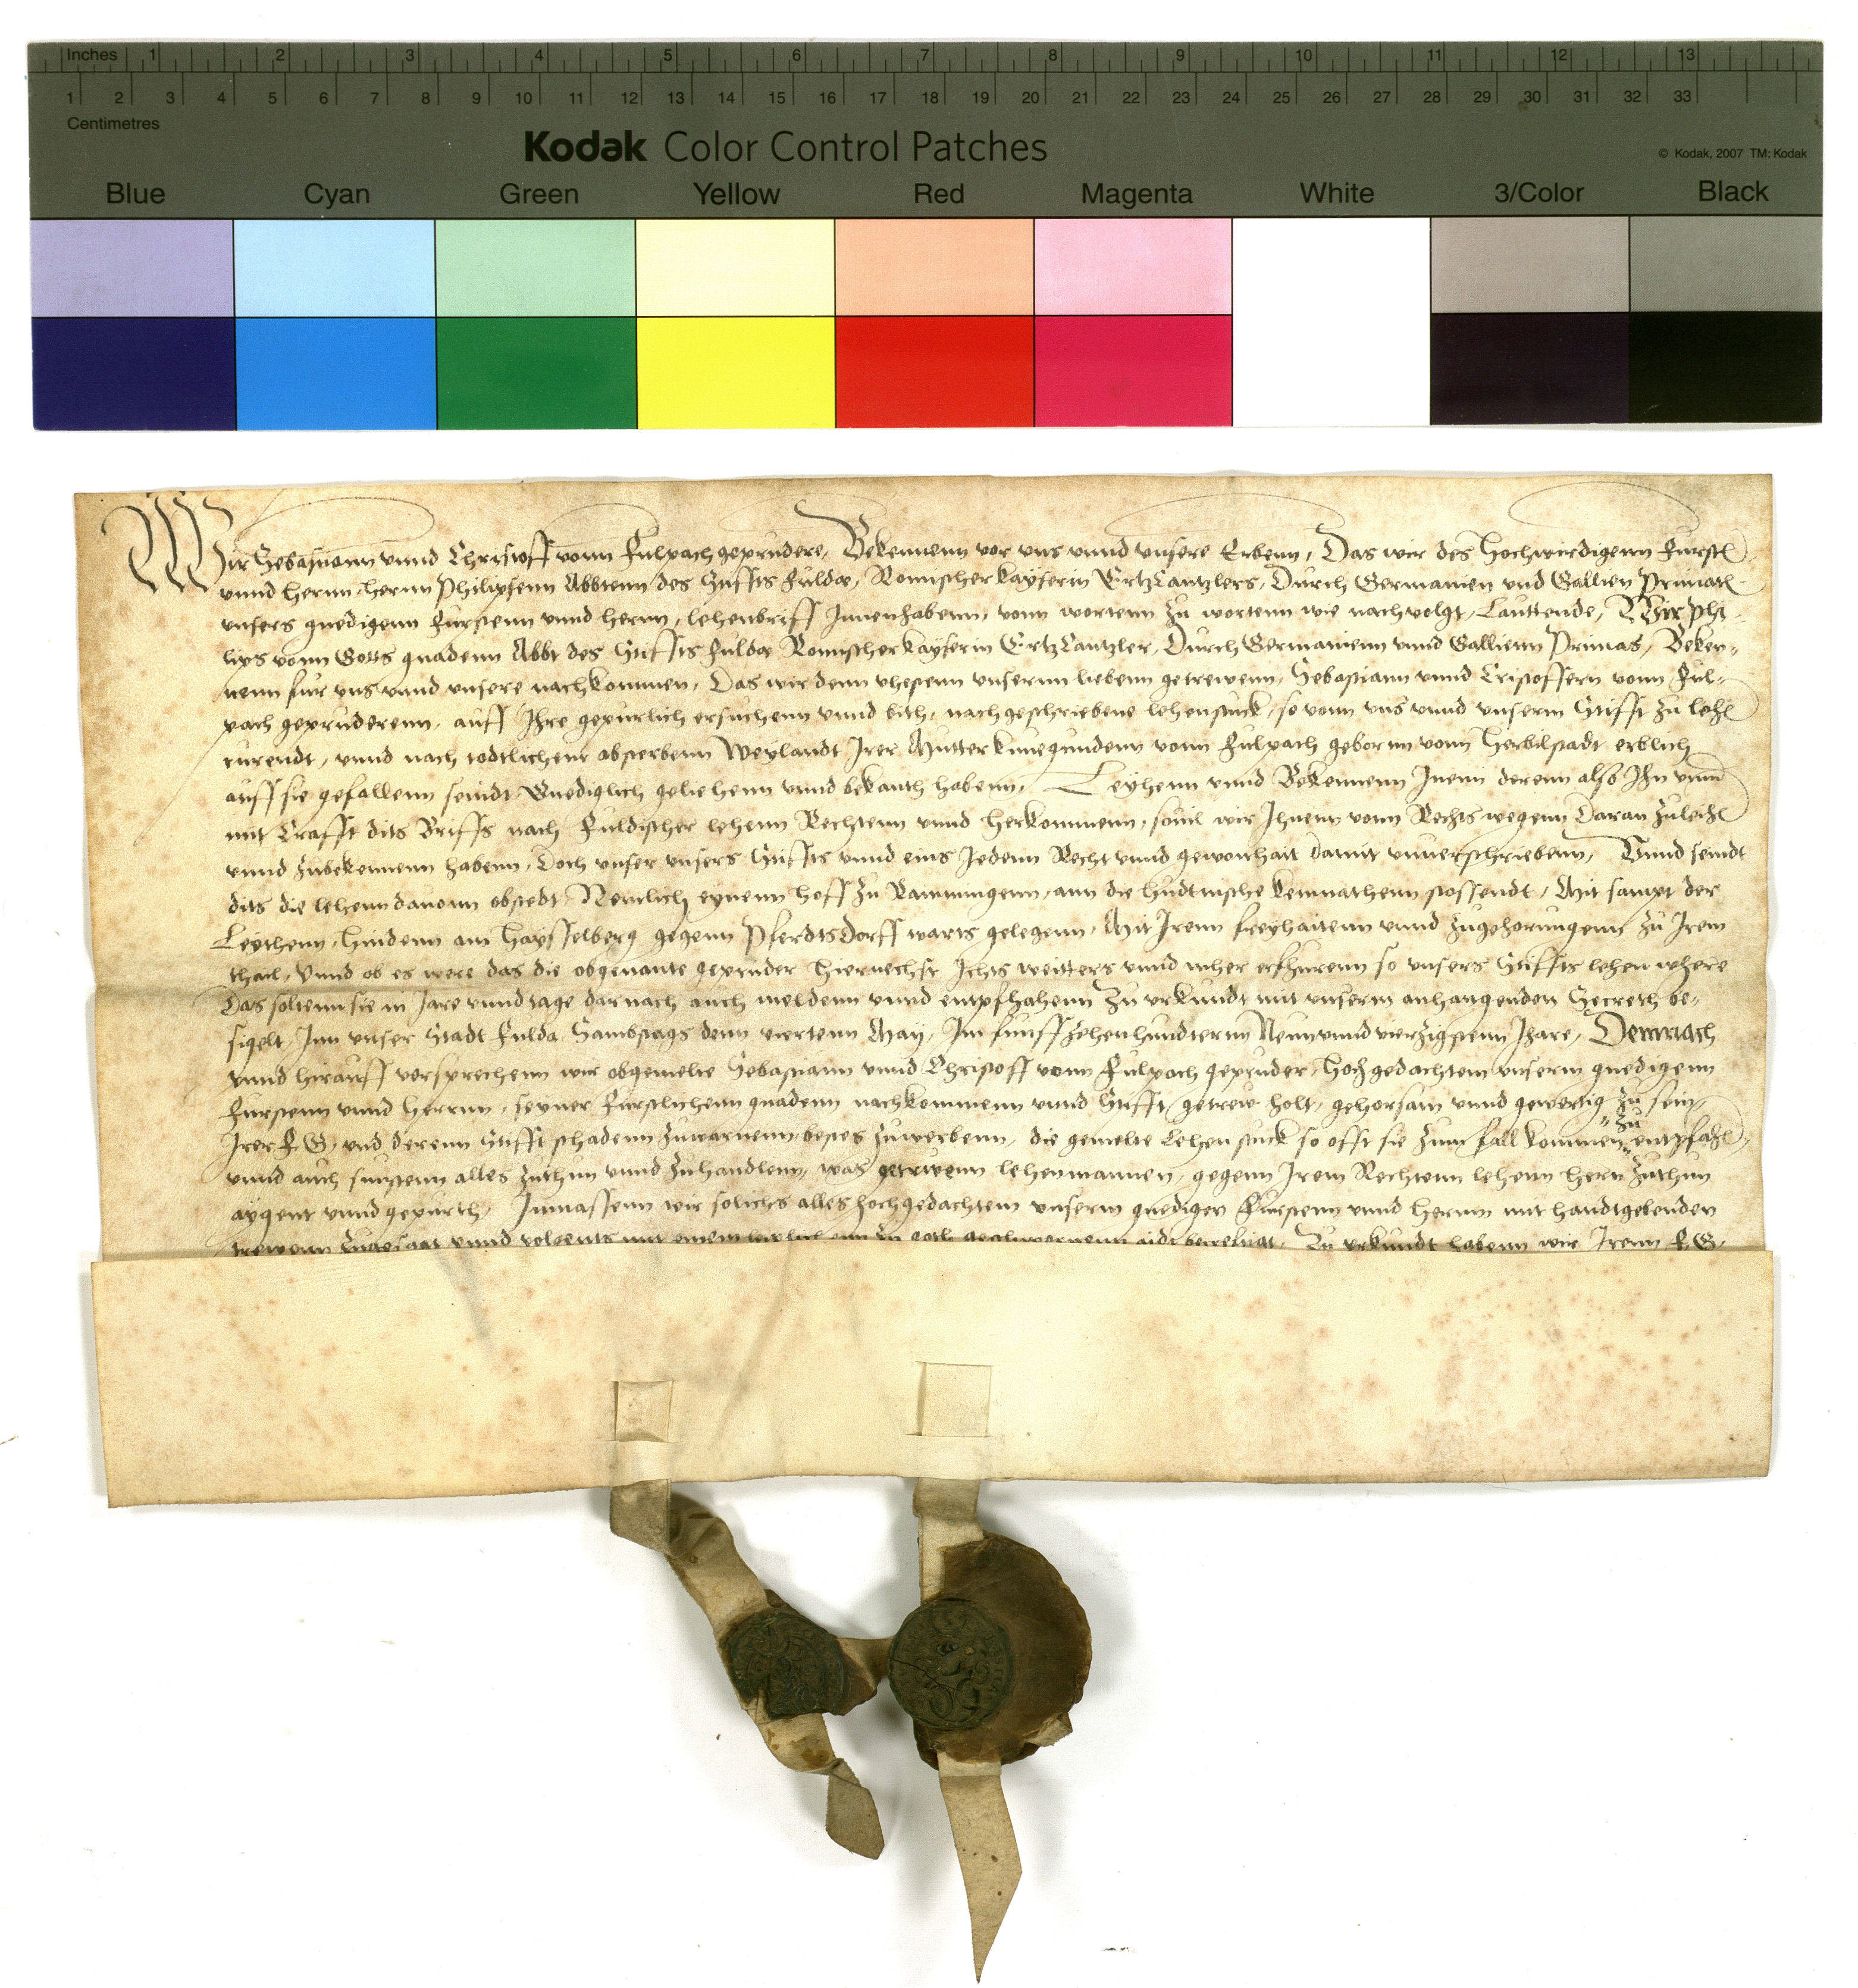 Inches 1 2 3 4 5 6 7 8 9 10 11 12 13
1 2 3 4 5 6 7 8 9 10 11 12 13 14 15 16 17 18 19 20 21 22 23 24 25 26 27 28 29 30 31 32 33
Centimetres
Kodak Color Control Patches
© Kodak, 2007 TM: Kodak
Blue Cyan Green Yellow Red Magenta White 3/Color Black
Wir Sebastiann vnnd Christoff vonn Fulpach geprudere, Bekennenn vor vns vnnd vnsere Erbenn, Das wir des Hochwirdigenn Furstl
vnnd Hernn, hernn Philipsenn Abbtenn des Stiffts Fuldæ, Romischer Kayserin ErtzCantzlers, Durch Germanien vnd Gallien Primatl
vnsers gnedigenn Furstenn vnnd hernn, lehenbriff Innenhabenn, vonn wortenn zu wortenn wie nachvolgt, Lauttende, Wir Phi-
lips vonn Gotts gnadenn Abbt des Stiffts Fuldæ Romischer Kayserin ErtzCantzler, Durch Germanienn vnnd Gallienn Primas, Beken-
nenn fur vns vnnd vnsere nachkommen, Das wir denn vhestenn vnsernn liebenn getrewenn, Sebastiann vnnd Cristoffern vonn Ful-
pach geprüderenn, auff Ihre gepurlich ersuchenn vnnd bith, nachgeschriebene lehenstuck, so vonn vns vnnd vnserm Stifft zu lehl
rurendt, vnnd nach todtlichenn absterbenn Weylandt Irer Mutter Kunegundenn vonn Fulpach gebornn vonn Herbilstadt erblich
auff sie gefallenn seindt Gnediglich geliehenn vnnd bekanth habenn, Leyhenn vnnd Bekennenn Inenn derenn also Ihn vnnd
mit Crafft dits Briffs nach Fuldischer lehenn Rechtenn vnnd Herkommenn, souil wir Ihnenn vonn Rechts wegenn Daran zuleihl
vnnd zubekennenn habenn, Doch vnser vnsers Stiffts vnnd eins Jedenn Recht vnnd gewonhait damit vnuerschriebenn, Vnnd seindt
dits die lehenn dauonn obstedt, Nemlich eynenn hoff zu Ramungenn, ann die hudtnische kemnathenn stossendt, Mit sampt der
Leythenn, hindenn am Haysselberg gegenn Pferdtsdorff warts gelegenn, Mit Irenn freyhaitenn vnnd zugehorungenn zu Irem
thail, Vnnd ob es were das die obgenante geprüder hiernechst Ichts weitters vnnd mher erfhurenn so vnsers Stiffts lehen where
Das soltenn sie in Jare vnnd tage darnach auch meldenn vnnd entpfhahenn Zu vrkundt mit vnserm anhangenden Secreth be-
sigelt, Inn vnser Stadt Fulda Sambstags denn viertenn May, Im funffzehenhundtertnn Neunvnnd vierzigstenn Jhare, Demnach
vnnd hirauff versprechenn wir obgemelte Sebastiann vnnd Christoff vonn Fulpach geprüder, Hochgedachtem vnserm gnedigenn
Furstenn vnnd Herrnn, seyner Furstlichenn gnadenn nachkommenn vnnd Stifft getrew holt, gehorsam vnnd gewertig zu sein,
Irer F G, vnd derenn Stifft schadenn zuwarnenn, bestes zuwerbenn, die gemelte Lehenstuck so offt sie zum fall kommen, zu entpfahl
vnnd auch sunstenn alles zuthun vnnd zuhandlenn, was getrwenn lehenmannen, gegenn Irem Rechtenn lehenn hern zuthun
aygent vnnd gepurth, Inmassenn wir solichs alles hochgedachtem vnserm gnedigen Furstenn vnnd Hernn mit handtgebenden
trewenn zugesagt vnnd volgents mit einem leiplich zu goth geschwornenn aidt bevestigt, Zu vrkundt habenn wir Irenn F G,